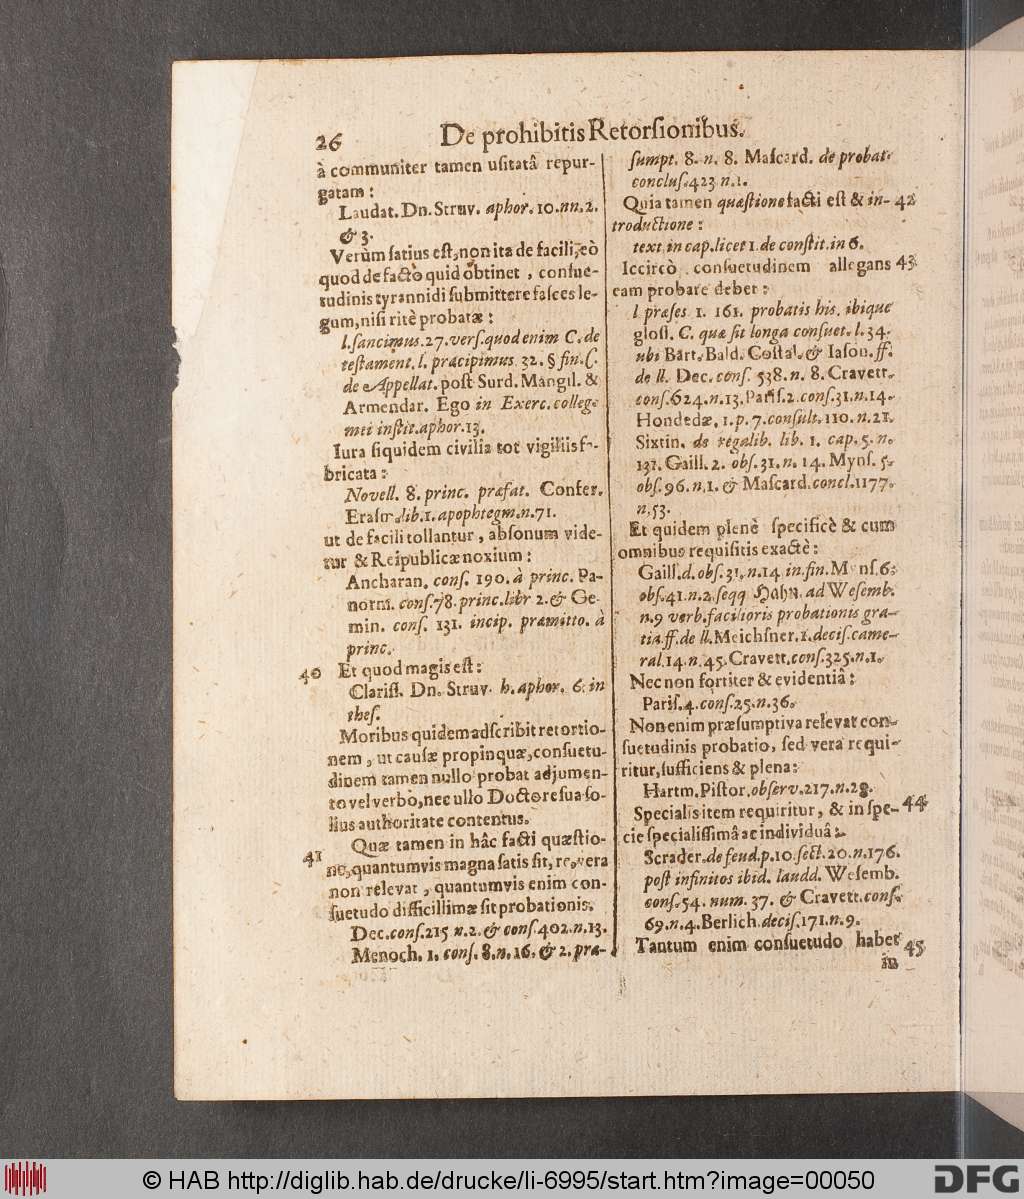 26 De prohibitis Retorſionibus.
à communiter tamen uſitatâ repur-
gatam:
Laudat. Dn. Struv. aphor. 10. nn. 2.
& 3.
Verùm ſatius eſt, non ita de facili, eò
quod de facto quid obtinet, conſue-
tudinis tyrannidi ſubmittere faſces le-
gum, niſi ritè probatæ:
l. ſancimus. 27. verſ. quod enim C. de
teſtament. l. præcipimus 32. § fin. C.
de Appellat. poſt Surd. Mangil. &
Armendar. Ego in Exerc. colleg.
mei inſtit. aphor. 13.
Iura ſiquidem civilia tot vigiliis fa-
bricata:
Novell. 8. princ. præfat. Confer.
Eraſm. lib. 1. apophtegm. n. 71.
ut de facili tollantur, abſonum vide-
tur & Reipublicæ noxium:
Ancharan. conſ. 190. à princ. Pa-
norm. conſ. 78. princ. libr 2. & Ge-
min. conſ. 131. incip. præmitto. à
princ.
40 Et quod magis eſt:
Clariſſ. Dn. Struv. h. aphor. 6. in
theſ.
Moribus quidem adſcribit retortio-
nem, ut cauſæ propinquæ, conſuetu-
dinem tamen nullo probat adjumen-
to vel verbo, nec ullo Doctore ſua ſo-
lius authoritate contentus.
41 Quæ tamen in hâc facti quæſtio-
ne, quantumvis magna ſatis ſit, re vera
non relevat, quantumvis enim con-
ſuetudo difficillimæ ſit probationis.
Dec. conſ. 215 n. 2. & conſ. 402. n. 13.
Menoch. 1. conſ. 8. n. 16. & 2. præ-
ſumpt. 8. n. 8. Maſcard. de probat.
concluſ. 423. n. 1.
Quia tamen quæſtione facti eſt & in- 42
troductione:
text. in cap. licet 1. de conſtit. in 6.
Iccircò conſuetudinem allegans 43
eam probare debet:
l præſes 1. 161. probatis his. ibique
gloſſ. C. quæ ſit longa conſuet. l. 34.
ubi Bart. Bald. Coſtal. & Iaſon. ff.
de ll. Dec. conſ. 538. n. 8. Cravett.
conſ. 624. n. 13. Pariſ. 2. conſ. 31. n. 14.
Hondedæ. 1. p. 7. conſult. 110. n. 21.
Sixtin. de regalib. lib. 1. cap. 5. n.
131. Gaill. 2. obſ. 31. n. 14. Mynſ. 5.
obſ. 96. n. 1. & Maſcard. concl. 1177.
n. 53.
Et quidem plenè ſpecificè & cum
omnibus requiſitis exactè:
Gaill. d. obſ. 31. n. 14 in fin. Mynſ. 6.
obſ. 41. n. 2. ſeqq Hahn. ad Weſemb.
n. 9 verb. facilioris probationis gra-
tia ff. de ll. Meichſner. 1. deciſ. came-
ral. 14. n. 45. Cravett. conſ. 325. n. 1.
Nec non fortiter & evidentiâ:
Pariſ. 4. conſ. 25. n. 36.
Non enim præſumptiva relevat con-
ſuetudinis probatio, ſed vera requi-
ritur, ſufficiens & plena:
Hartm. Piſtor. obſerv. 217. n. 28.
Specialis item requiritur, & in ſpe- 44
cie ſpecialiſſimâ ac individuâ:
Scrader. de feud. p. 10. ſect. 20. n. 176.
poſt infinitos ibid. laudd. Weſemb.
conſ. 54. num. 37. & Cravett. conſ.
69. n. 4. Berlich. deciſ. 171. n. 9.
Tantum enim conſuetudo habet 45
in
© HAB http://diglib.hab.de/drucke/li-6995/start.htm?image=00050
DFG